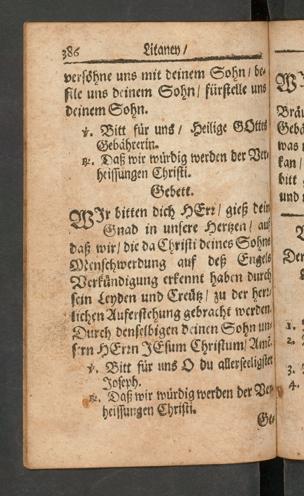 386 Litaney /
versöhne uns mit deinem Sohn / be-
file uns deinem Sohn / fürstelle uns
deinem Sohn.
℣. Bitt für uns / Heilige GOttes
Gebährerin.
℟. Daß wir würdig werden der Ver-
heissungen Christi.
Gebett.
WIr bitten dich HErr / gieß dein
Gnad in unsere Hertzen / auf
daß wir / die da Christi deines Sohns
Menschwerdung auf deß Engels
Verkündigung erkennt haben durch
sein Leyden und Creütz / zu der herr-
lichen Auferstehung gebracht werden.
Durch denselbigen deinen Sohn un-
sern HErrn JEsum Christum / Amē.
℣. Bitt für uns O du allerseeligster
Joseph.
℟. Daß wir würdig werden der Ver-
heissungen Christi.
Ge-